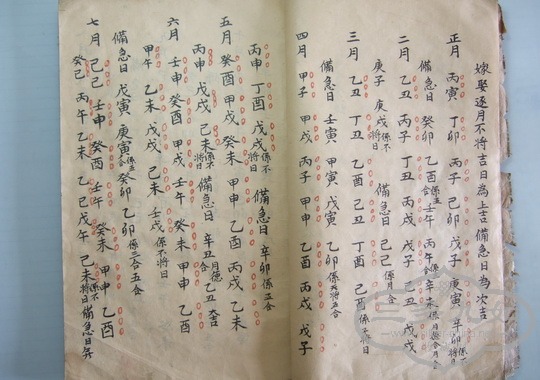 嫁娶逐月不将吉日為上吉備急日為次吉
正月 丙寅 丁卯 丙子 己卯 戊子 庚寅 辛卯
備急日 癸卯 乙酉 壬午 丙午 辛未
二月 乙丑 丙子 丁丑 丙戌 戊子 己丑 戊戌
庚子 庚戌係不將日 備急日 己巳
三月 乙丑 丁丑 乙酉 己丑 丁酉
備急日 壬寅 甲寅 乙卯
四月 甲子 丙子 戊寅 甲戌 乙酉 丙戌 戊子
丙申 丁酉 戊戌係不將日 備急日 辛卯係五合
五月 癸酉 甲戌 癸未 甲申 乙酉 丙戌 乙未
丙申 戊戌 己未係不將日 備急日 辛丑月德合大吉
六月 壬申 癸酉 甲戌 壬午 癸未 甲申 乙酉
甲午 乙未 戊戌 己未 壬戌係不將日
備急日 戊寅 庚寅 癸卯 乙卯係三合五合
七月 己巳 壬申 癸酉 壬午 癸未 甲申 乙酉
癸巳 丙午 乙未 乙巳 戊午 己未係不將日備急日